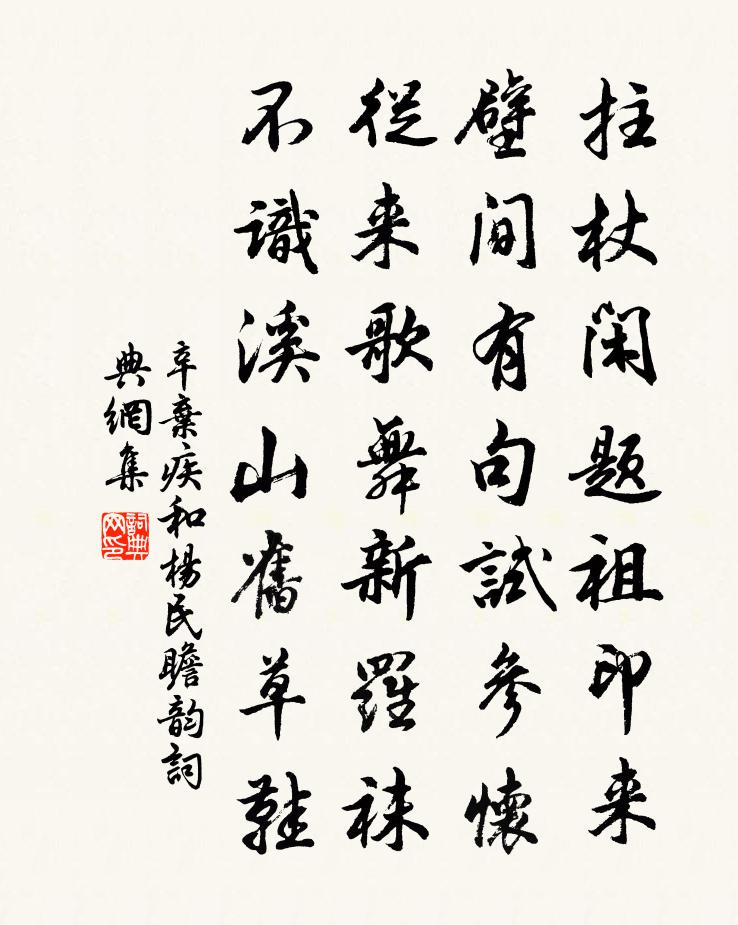 拄杖閑題祖印来
壁间有句試參懷
從来歌舞新羅袜
不識溪山舊草鞋
辛棄疾和楊民瞻韵詞
典網集
詞典網印